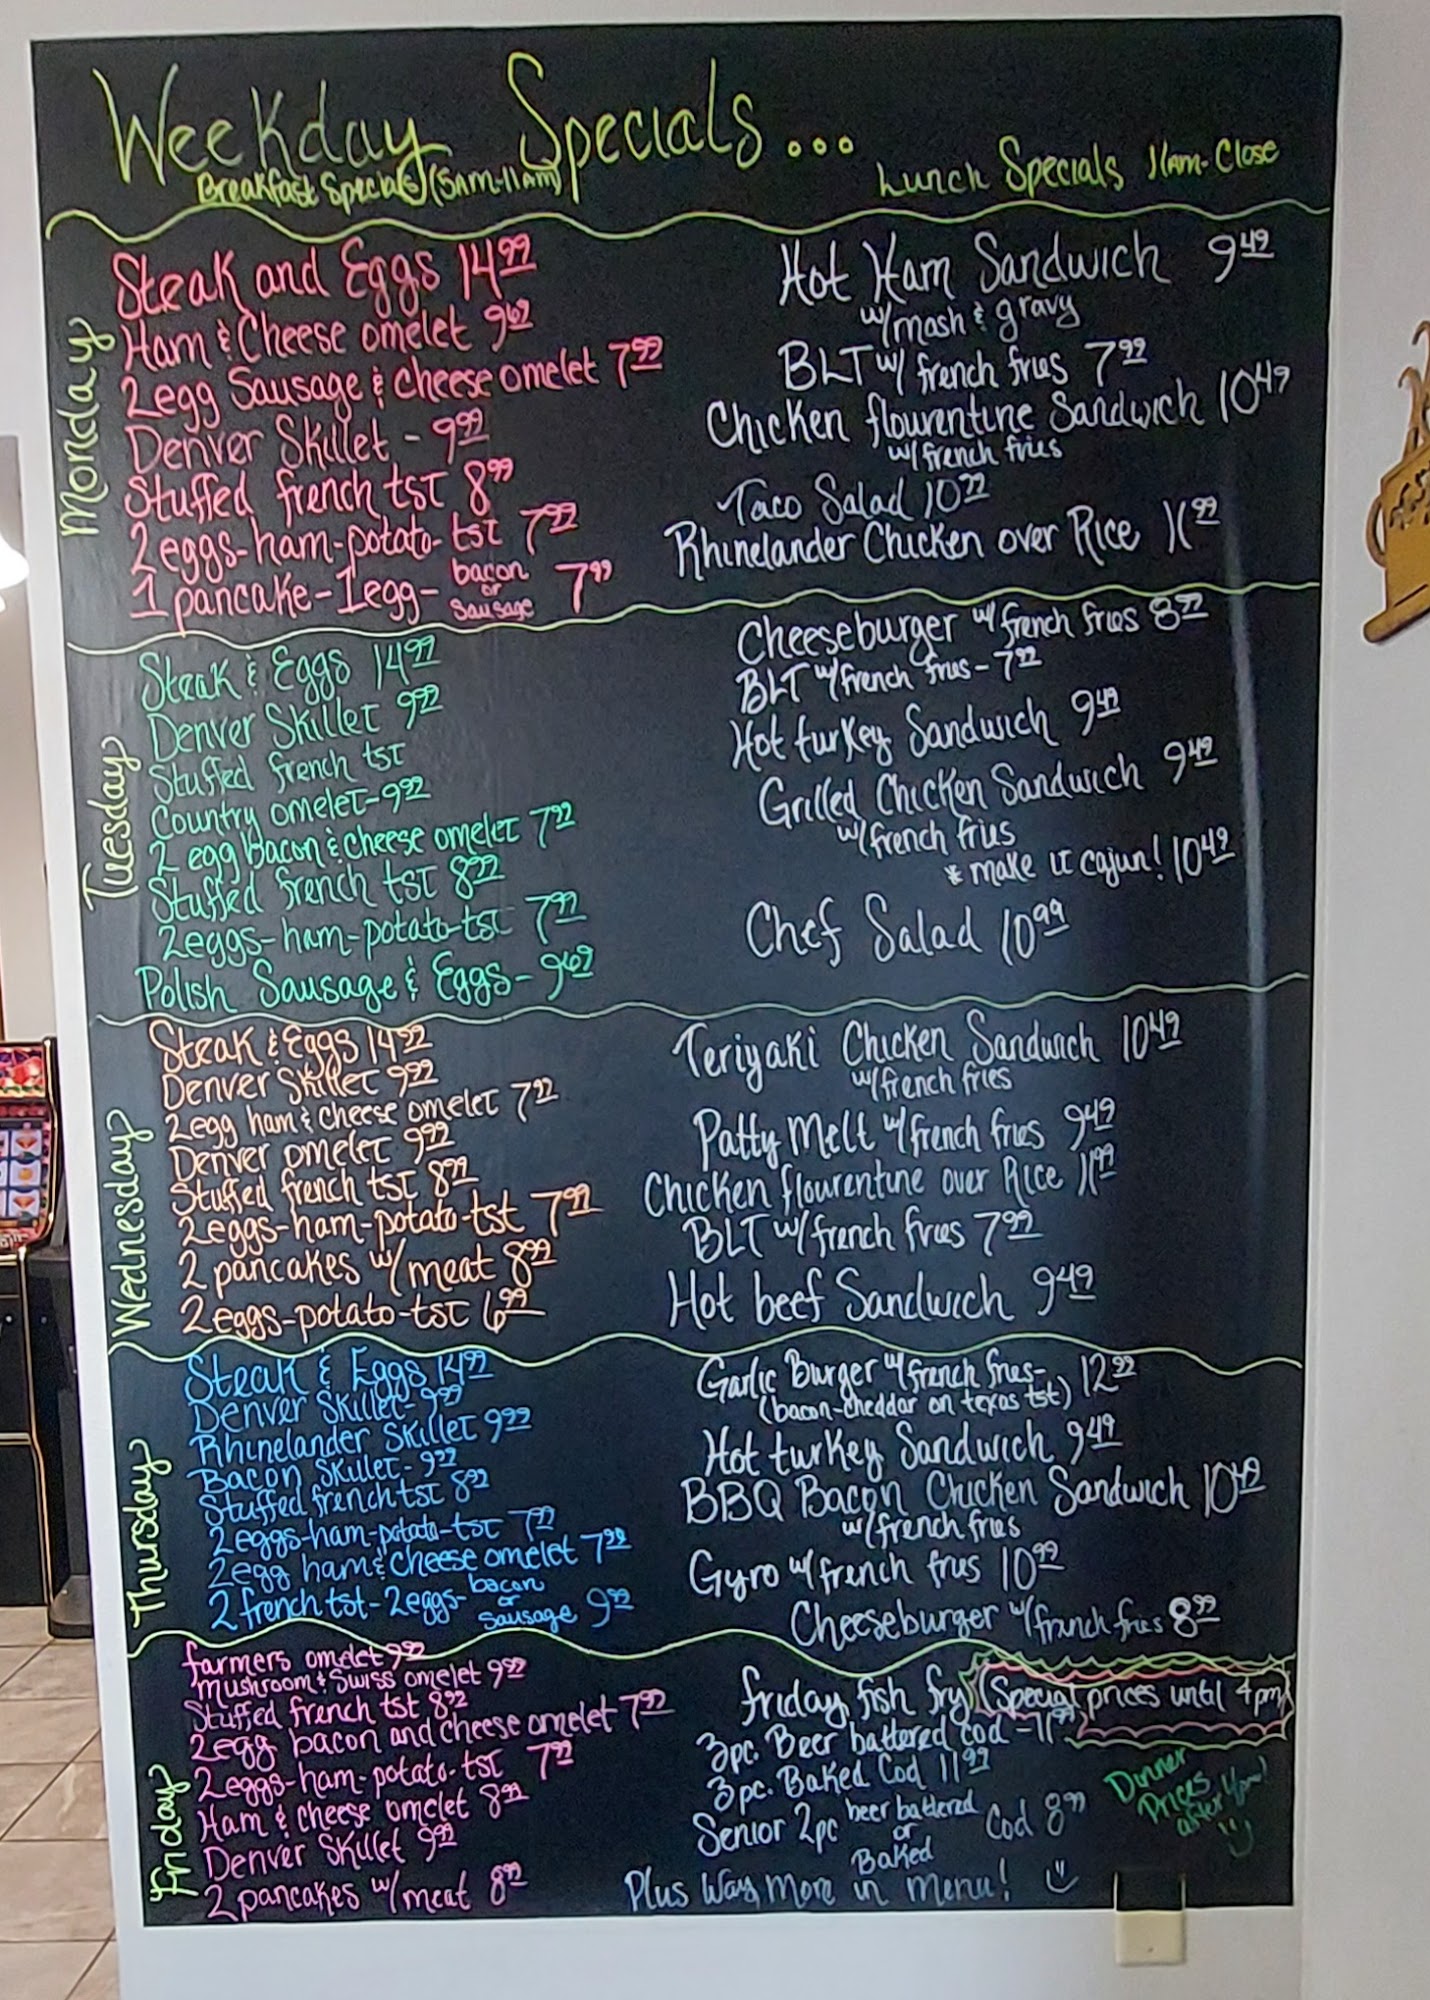 Weekday Specials...
Breakfast Specials (5AM-11AM)
Lunch Specials 11AM-Close
Monday
Steak and Eggs 14.99
Ham & Cheese omelet 9.69
2egg Sausage & Cheese omelet 7.99
Denver Skillet - 9.99
Stuffed french tst 8.99
2eggs-ham-potato-tst 7.99
1 pancake-1egg- bacon or Sausage 7.99
Hot Ham Sandwich 9.49
w/mash & gravy
BLT w/ french fries 7.99
Chicken flourentine Sandwich 10.49
w/french fries
Taco Salad 10.99
Rhinelander Chicken over Rice 11.99
Tuesday
Steak & Eggs 14.99
Denver Skillet 9.99
Stuffed french tst
Country omelet-9.99
2 egg Bacon & cheese omelet 7.99
Stuffed french tst 8.99
2eggs-ham-potato-tst 7.99
Polish Sausage & Eggs-9.69
Cheeseburger w/french fries 8.99
BLT w/french fries-7.99
Hot turkey Sandwich 9.49
Grilled Chicken Sandwich 9.49
w/french fries
*make it cajun! 10.49
Chef Salad 10.99
Wednesday
Steak & Eggs 14.99
Denver Skillet 9.99
2egg ham & cheese omelet 7.99
Denver omelet 9.99
Stuffed french tst 8.99
2eggs-ham-potato-tst 7.99
2 pancakes w/meat 8.99
2eggs-potato-tst 6.99
Teriyaki Chicken Sandwich 10.49
w/french fries
Patty Melt w/french fries 9.49
Chicken flourentine over Rice 11.99
BLT w/french fries 7.99
Hot beef Sandwich 9.49
Thursday
Steak & Eggs 14.99
Denver Skillet-9.99
Rhinelander Skillet 9.99
Bacon Skillet-9.99
Stuffed french tst 8.99
2eggs-ham-potato-tst 7.99
2egg ham & cheese omelet 7.99
2 french tst-2eggs- bacon or Sausage 9.99
Garlic Burger w/french fries- 12.99
(bacon-cheddar on texas tst)
Hot turkey Sandwich 9.49
BBQ Bacon Chicken Sandwich 10.49
w/french fries
Gyro w/french fries 10.99
Cheeseburger w/french fries 8.99
Friday
farmers omelet 9.99
mushroom & Swiss omelet 9.99
Stuffed french tst 8.99
2egg bacon and cheese omelet 7.99
2eggs-ham-potato-tst 7.99
Ham & cheese omelet 8.99
Denver Skillet 9.99
2 pancakes w/meat 8.99
friday fish fry (Special prices until 4pm)
3pc. Beer battered Cod -11.99
3pc. Baked Cod 11.99
Senior 2pc beer battered or Baked Cod 8.99
Dinner
Prices
after 4pm!
Plus Way More in menu!